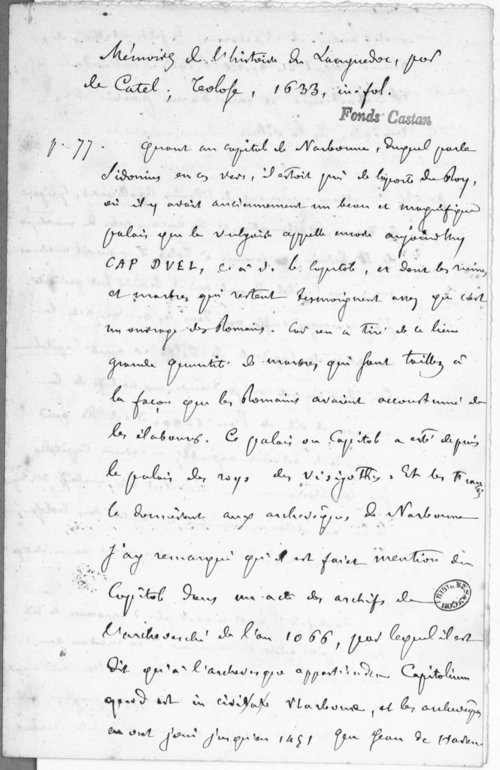 Mémoires de l'histoire du Languedoc, par
de Catel; Tolose, 1633, in-fol.
Fonds Castan
p. 77. Quant au capitole de Narbonne, duquel parle
Sidonius en ces vers, il estoit près de la porte du Roy,
où il y avoit anciennement un beau et magnifique
palais que le vulgaire appelle encore aujourd'huy
CAP DVEL, c. à d. le Capitole, et dont les ruines
et marbres qui restent tesmoignent assez que c'est
un ouvrage des Romains. Car on a tiré de ce lieu
grande quantité de marbres qui sont taillez à
la façon que les Romains avaient accoustumé de
les élabourer. Ce palais ou Capitole a esté depuis
le palais des roys des Visigoths. Et les
le donnèrent aux archevesques de Narbonne
J'ay remarqué qu'il est faict mention du
Capitole dans un acte des archifs de
l'Archevesché de l'an 1066, par lequel il est
dit qu'à l'archevesque appartient Capitolium
quod est in civitate Narbona, et les archevesques
en ont joui jusqu'en 1451 que Jean de
BIBL. BESANÇON